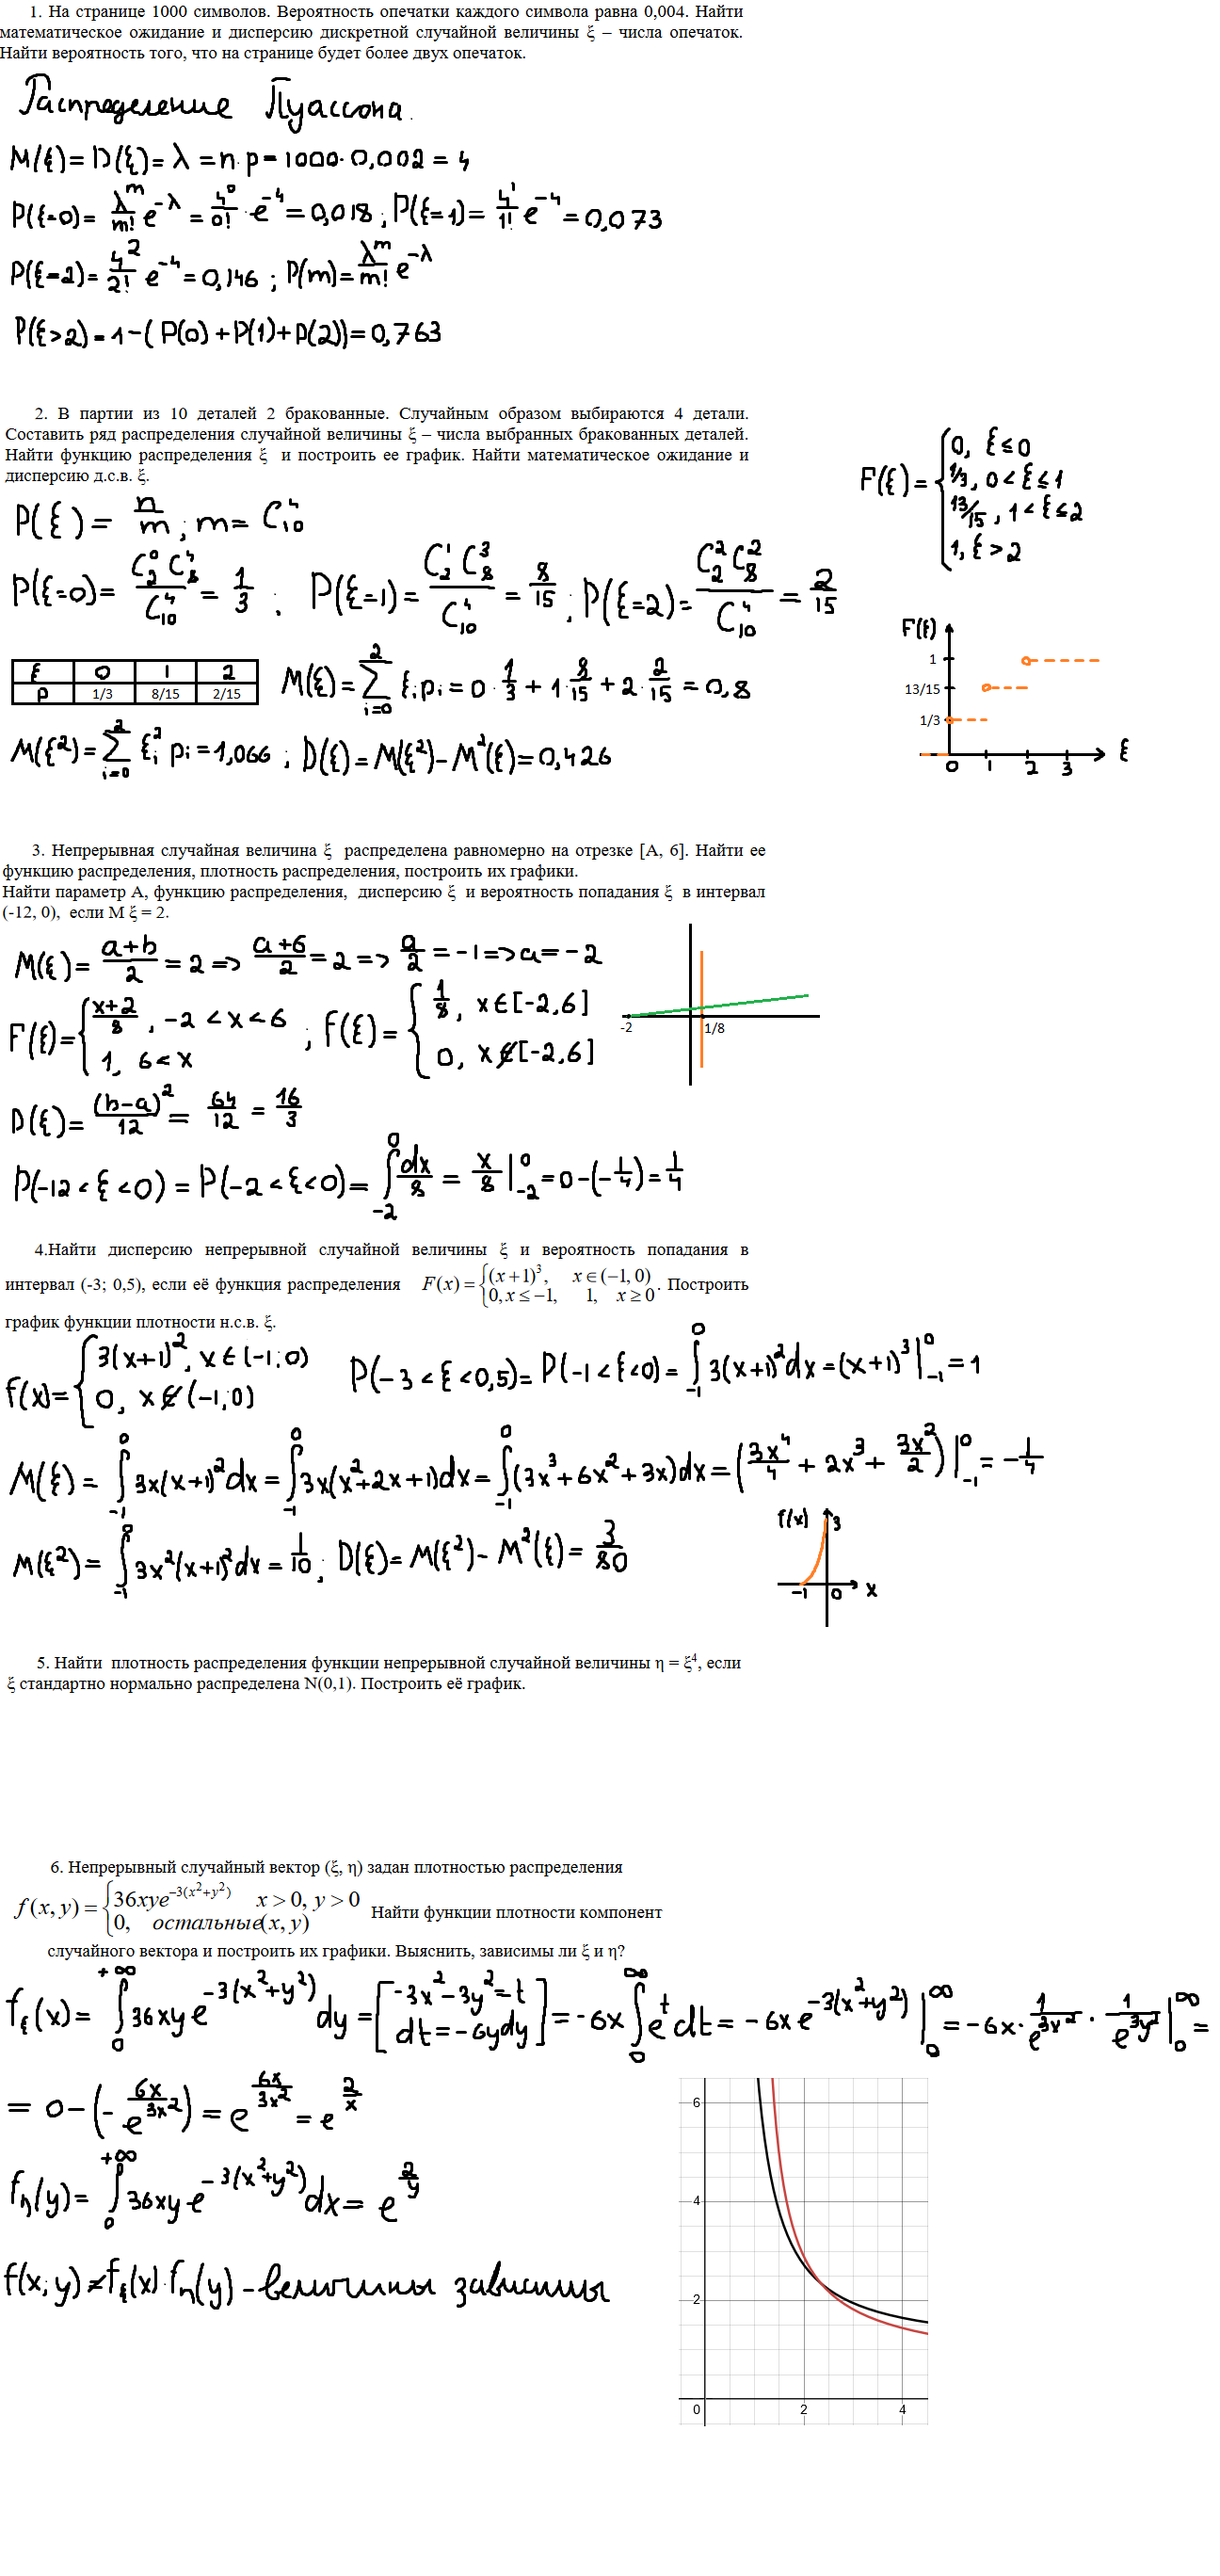 1. На странице 1000 символов. Вероятность опечатки каждого символа равна 0,004. Найти
математическое ожидание и дисперсию дискретной случайной величины ξ – числа опечаток.
Найти вероятность того, что на странице будет более двух опечаток.
Распределение Пуассона.
M(ξ) = D(ξ) = λ = n·p = 1000·0,002 = 4
P(ξ=0) = λ^m/m! e^-λ = 4^0/0! · e^-4 = 0,018 ; P(ξ=1) = 4^1/1! e^-4 = 0,073
P(ξ=2) = 4^2/2! e^-4 = 0,146 ; P(m) = λ^m/m! e^-λ
P(ξ>2) = 1 - (P(0) + P(1) + P(2)) = 0,763
2. В партии из 10 деталей 2 бракованные. Случайным образом выбираются 4 детали.
Составить ряд распределения случайной величины ξ – числа выбранных бракованных деталей.
Найти функцию распределения ξ и построить ее график. Найти математическое ожидание и
дисперсию д.с.в. ξ.
F(ξ) = { 0, ξ ≤ 0
1/3, 0 < ξ ≤ 1
13/15, 1 < ξ ≤ 2
1, ξ > 2
P(ξ) = n/m ; m = C_10^4
P(ξ=0) = C_2^0 C_8^4 / C_10^4 = 1/3 ; P(ξ=1) = C_2^1 C_8^3 / C_10^4 = 8/15 ; P(ξ=2) = C_2^2 C_8^2 / C_10^4 = 2/15
F(ξ)
1
13/15
1/3
0 1 2 3 ξ
ξ 0 1 2
p 1/3 8/15 2/15
M(ξ) = ∑_{i=0}^{2} ξ_i p_i = 0·1/3 + 1·8/15 + 2·2/15 = 0,8
M(ξ^2) = ∑_{i=0}^{2} ξ_i^2 p_i = 1,066 ; D(ξ) = M(ξ^2) - M^2(ξ) = 0,426
3. Непрерывная случайная величина ξ распределена равномерно на отрезке [A, 6]. Найти ее
функцию распределения, плотность распределения, построить их графики.
Найти параметр A, функцию распределения, дисперсию ξ и вероятность попадания ξ в интервал
(-12, 0), если M ξ = 2.
M(ξ) = a+b/2 = 2 => a+6/2 = 2 => a/2 = -1 => a = -2
F(ξ) = { x+2/8, -2 < x < 6
1, 6 < x ; f(ξ) = { 1/8, x∈[-2,6]
0, x∉[-2,6]
-2 1/8
D(ξ) = (b-a)^2/12 = 64/12 = 16/3
P(-12 < ξ < 0) = P(-2 < ξ < 0) = ∫_{-2}^{0} dx/8 = x/8 |_{-2}^{0} = 0 - (-1/4) = 1/4
4.Найти дисперсию непрерывной случайной величины ξ и вероятность попадания в
интервал (-3; 0,5), если её функция распределения F(x) = { (x+1)^3, x∈(-1, 0)
0, x ≤ -1, 1, x ≥ 0 . Построить
график функции плотности н.с.в. ξ.
f(x) = { 3(x+1)^2, x∈(-1;0)
0, x∉(-1;0)
P(-3 < ξ < 0,5) = P(-1 < ξ < 0) = ∫_{-1}^{0} 3(x+1)^2 dx = (x+1)^3 |_{-1}^{0} = 1
M(ξ) = ∫_{-1}^{0} 3x(x+1)^2 dx = ∫_{-1}^{0} 3x(x^2+2x+1)dx = ∫_{-1}^{0} (3x^3+6x^2+3x)dx = (3x^4/4 + 2x^3 + 3x^2/2) |_{-1}^{0} = -1/4
M(ξ^2) = ∫_{-1}^{0} 3x^2(x+1)^2 dx = 1/10 ; D(ξ) = M(ξ^2) - M^2(ξ) = 3/80
f(x) 3
-1 0 x
5. Найти плотность распределения функции непрерывной случайной величины η = ξ^4, если
ξ стандартно нормально распределена N(0,1). Построить её график.
6. Непрерывный случайный вектор (ξ, η) задан плотностью распределения
f(x, y) = { 36xye^{-3(x^2+y^2)} x > 0, y > 0
0, остальные(x, y) Найти функции плотности компонент
случайного вектора и построить их графики. Выяснить, зависимы ли ξ и η?
f_ξ(x) = ∫_{0}^{+∞} 36xye^{-3(x^2+y^2)} dy = [-3x^2-3y^2=t
dt=-6ydy] = -6x ∫_{0}^{∞} e^t dt = -6xe^{-3(x^2+y^2)} |_{0}^{∞} = -6x · 1/e^{3x^2} · 1/e^{3y^2} |_{0}^{∞} =
= 0 - (-6x/e^{3x^2}) = e^{6x/3x^2} = e^{2/x}
f_η(y) = ∫_{0}^{+∞} 36xy·e^{-3(x^2+y^2)} dx = e^{2/y}
f(x;y) ≠ f_ξ(x)·f_η(y) - величины зависимы
6
4
2
0 2 4